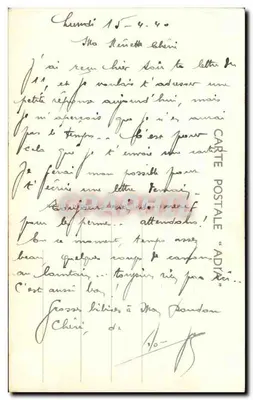 Lundi 15-4-40
Ma Minette Chérie
J'ai reçu hier soir ta lettre du
11 et je voulais t'adresser une
petite réponse aujourd'hui, mais
je m'aperçois que je n'en aurai
pas le temps... C'est pour
cela que je t'envoie une carte
Je ferai mon possible pour
t'écrire une lettre demain.
Toujours
pour la perme... attendons!
En ce moment, temps assez
beau quelques coups de canon
au lointain... toujours rien par ici..
C'est aussi bon!
Grosses bibises à Ma Doudou
Chérie, de
CARTE POSTALE "ADIA"